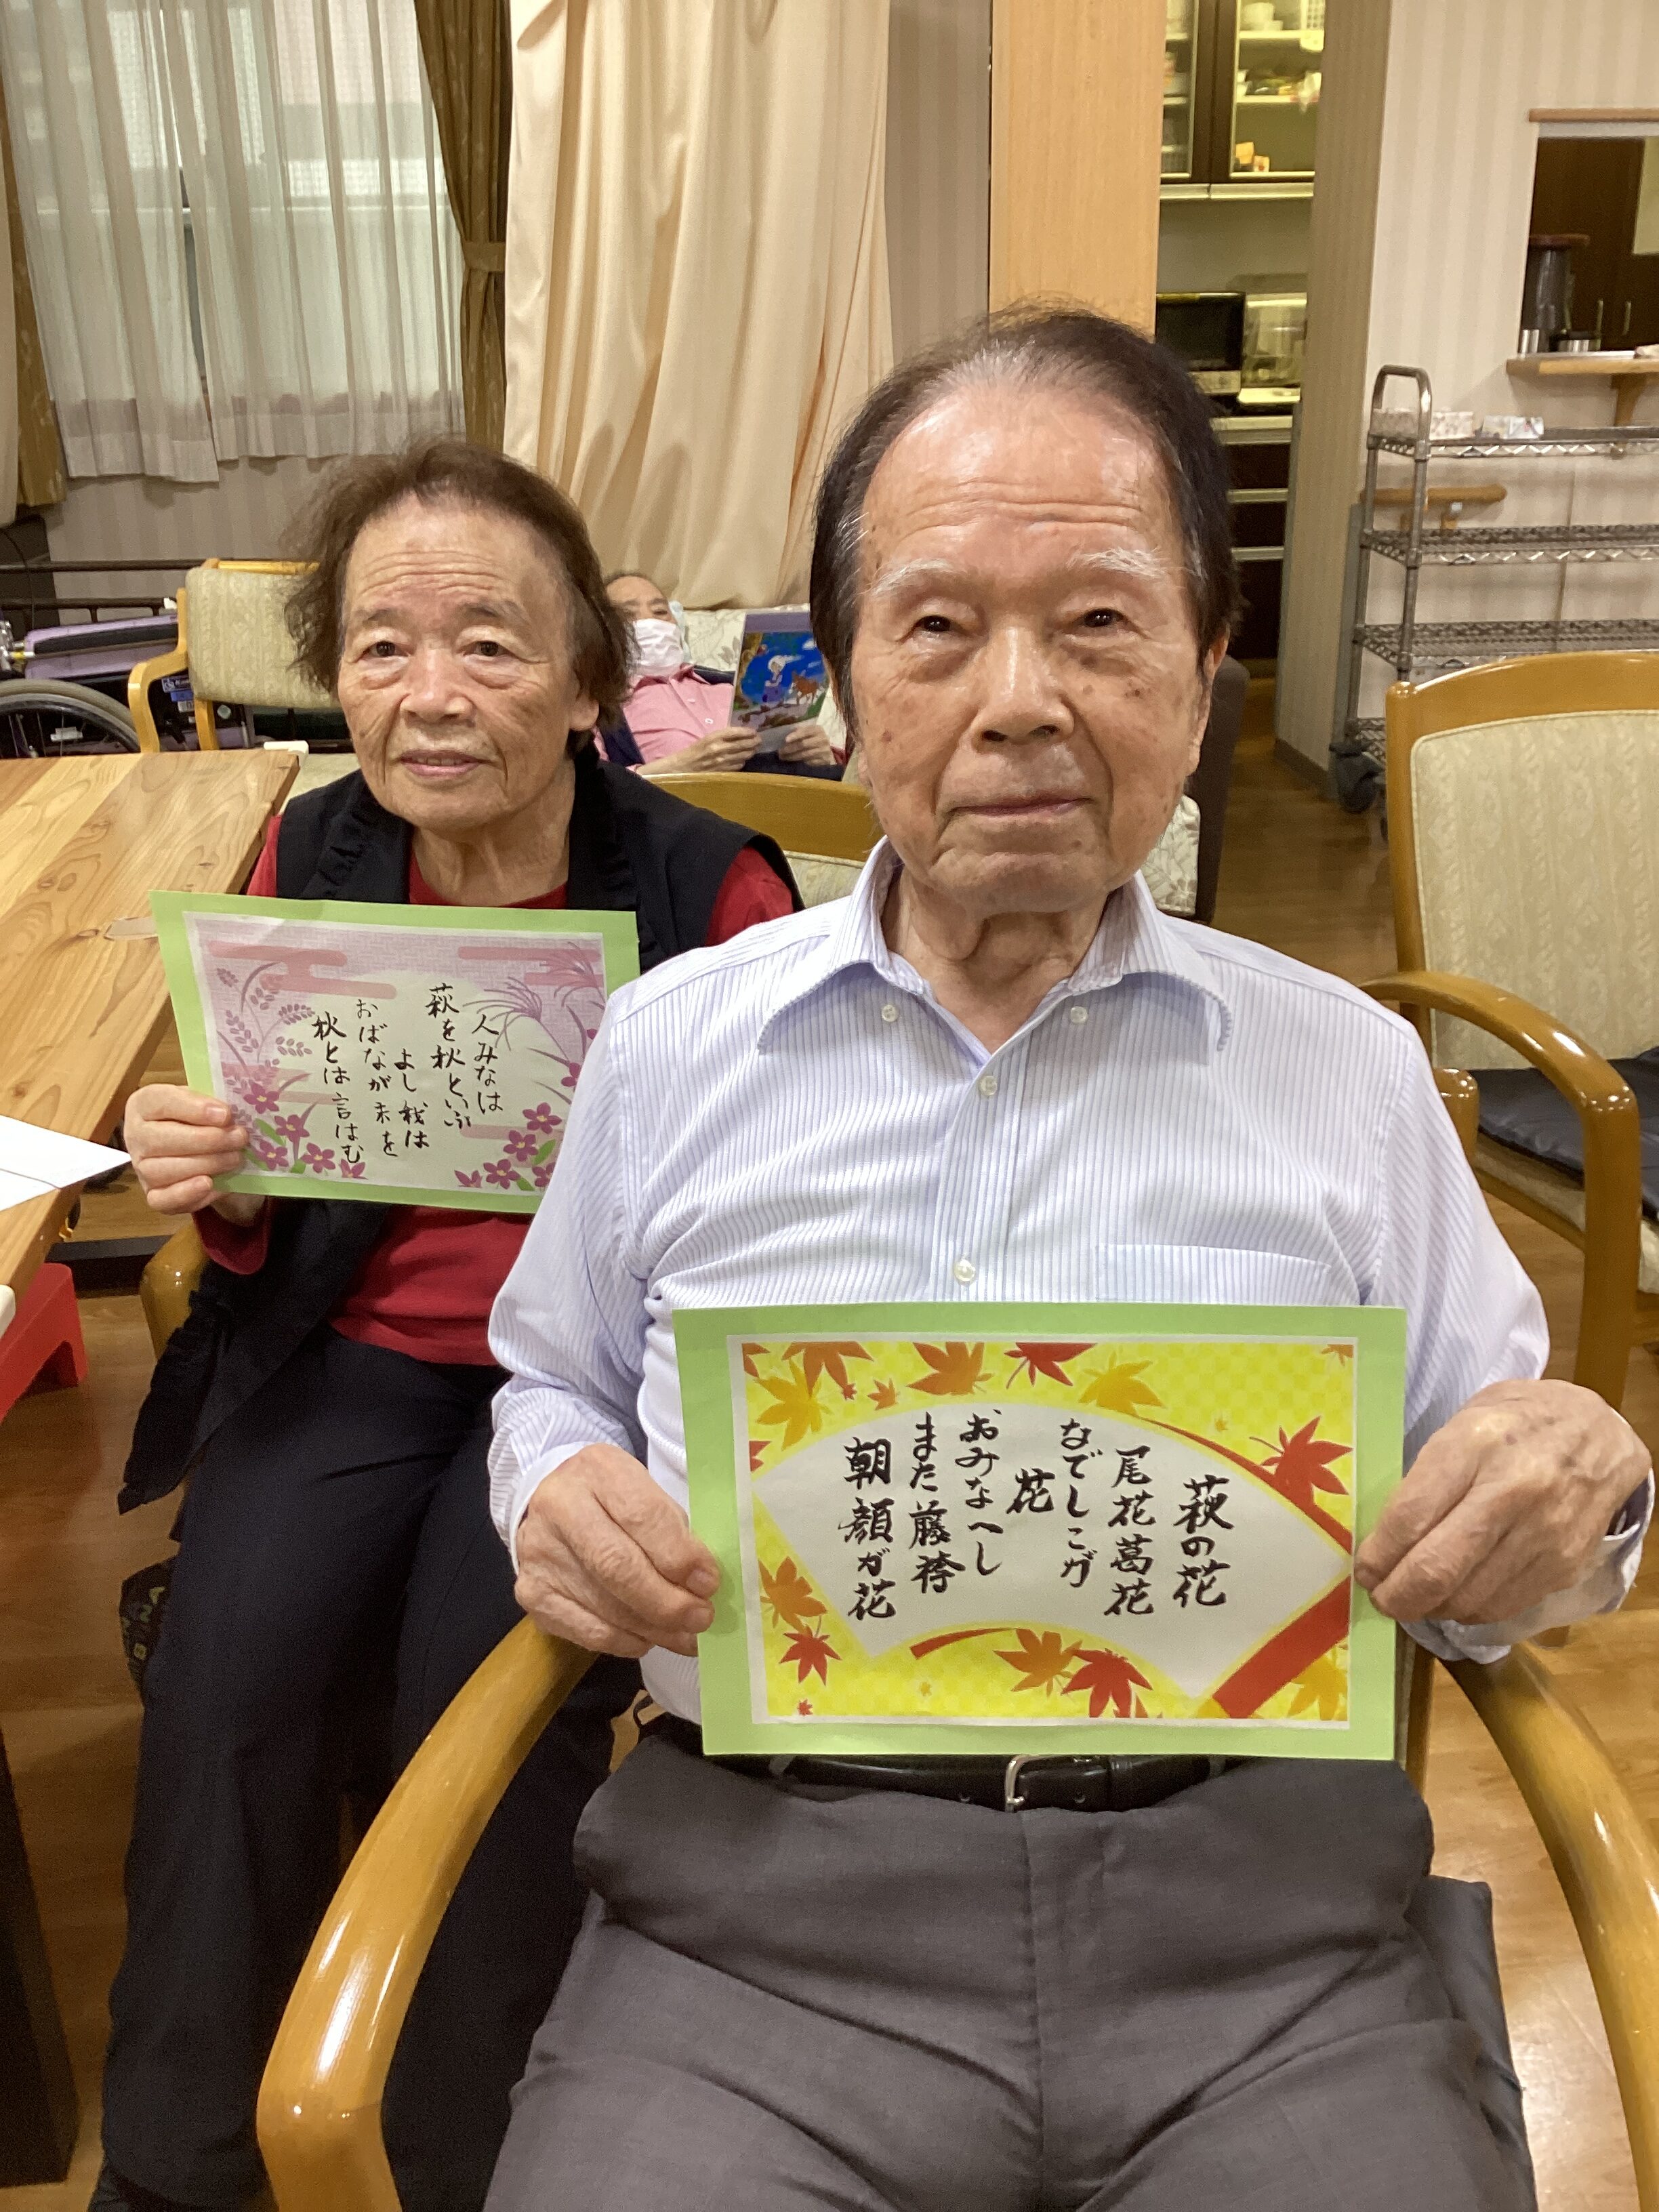 人みなは
萩を秋といふ
よし我は
おばなが末を
秋とは言はむ
萩の花
尾花葛花
なでしこが
花
おみなへし
また藤袴
朝顔が花